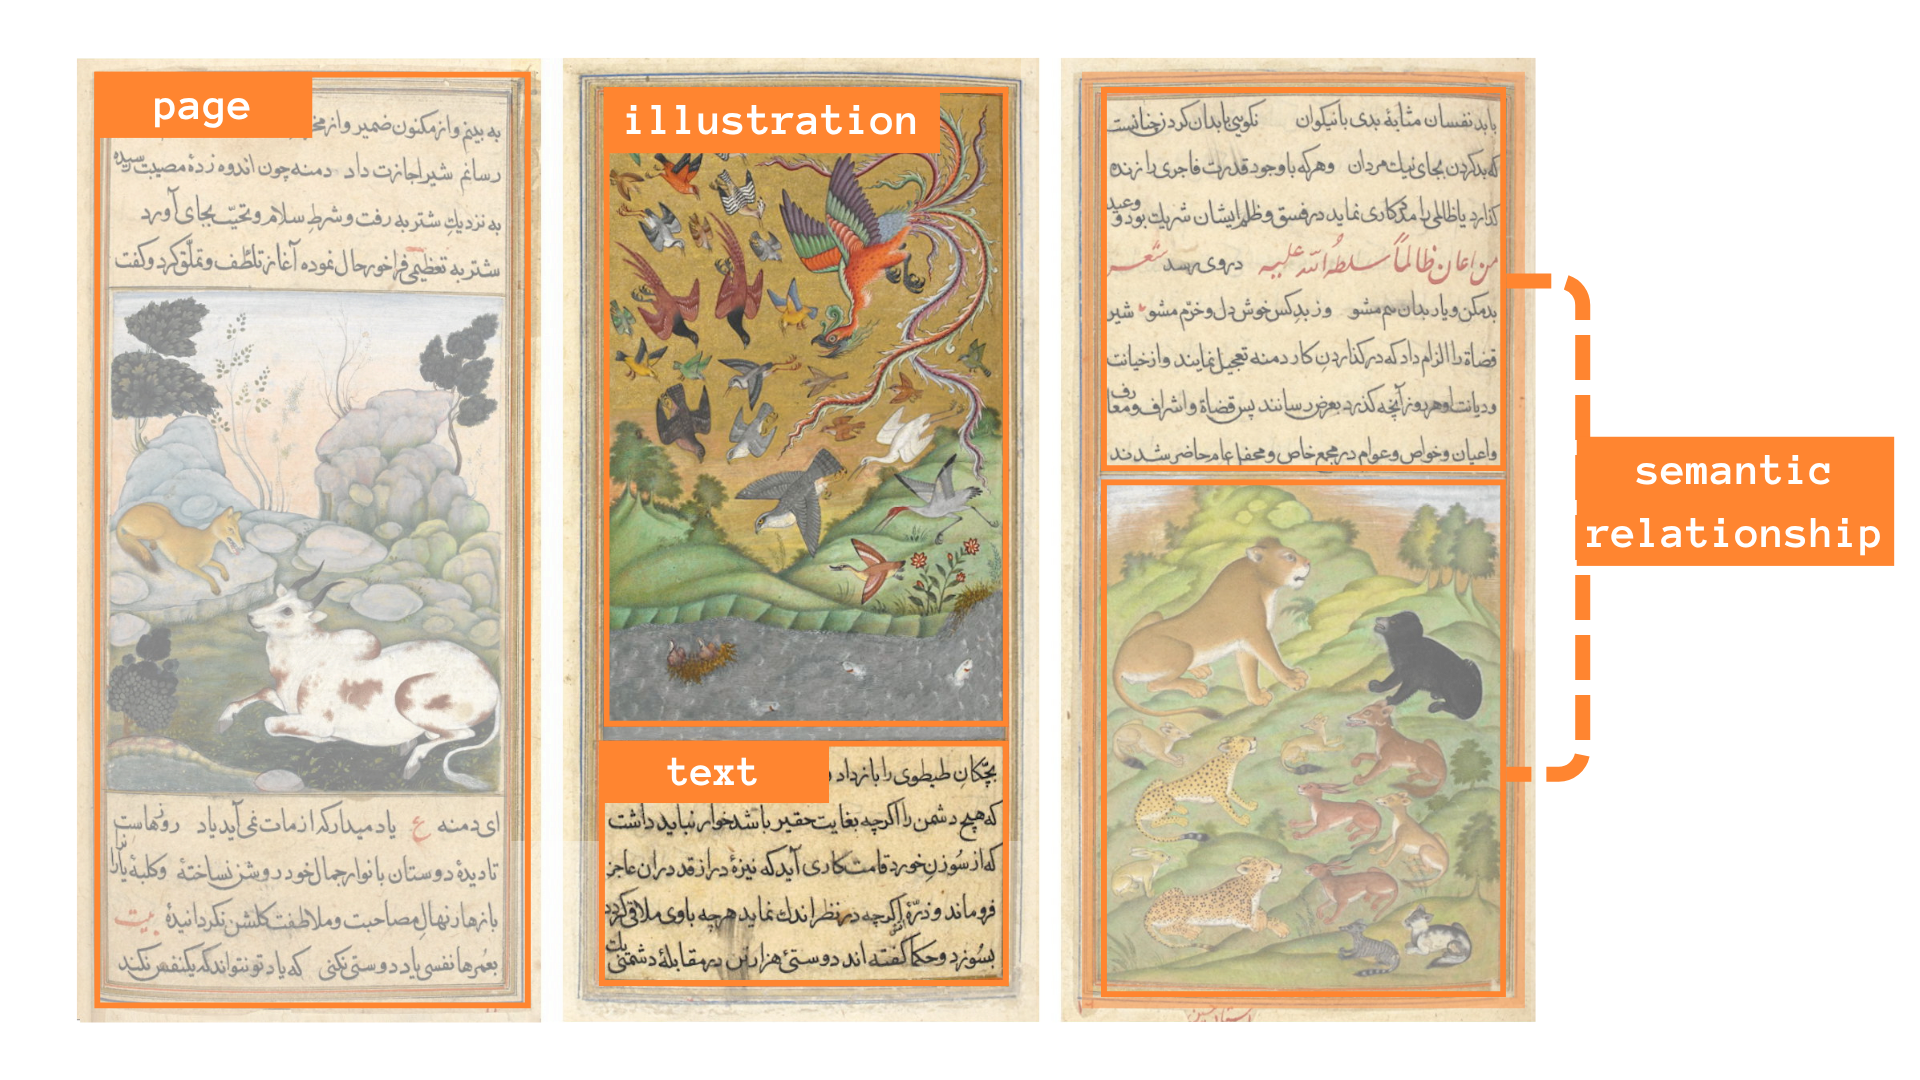 page
به بینم و از مکنون ضمیر و از
رسانم شیر اجازت داد دمنه چون اندوه زدهٔ مصیبت رسیده
به نزدیك شتربه رفت و شرطِ سلام و تحیّت بجای آورد
شتربه تعظیمی فراخور حال نموده آغاز تلطّف و تملّق کرد و گفت
ای دمنه ع یاد میدار که از مات نمی آید یاد روزهاست
تا دیدهٔ دوستان با نوار جمال خود روشن نساختهٔ و کلبهٔ
بازهار نهال مصاحبت و ملاطفت گلشن نگردانیدهٔ بیت
بعمرها نفسی یاد دوستی نکنی که یاد تو نتواند که یکنفس نکند
illustration
text
بچّکانِ طیطوی را باز داد
که هیچ دشمن را اگرچه بغایت حقیر باشد خوار نباید داشت
که از سُوزنِ خورد قامت کاری آید که نیزهٔ دراز قد دران عاجز
فروماند و ذرّهٔ آتش اگرچه در نظر اندك نماید هرچه باوی ملاقی گردد
بسُوزد و حکما گفته اند دوستئ هزار تن در مقابلهٔ دشمنئ یك
با بد نفسان مثابهٔ بدی با نیکوان نکویی با بدان کردن چنانست
که بد کردن بجای نیك مردان و هرکه با وجود قدرت فاجری را زنده
گذارد یا ظالمی را مددکاری نماید در فسق و ظلم ایشان شریك بود و وعید
من اعان ظالماً سلطهُ الله علیه در وی رسد شعر
بد مکن و یار بدان هم مشو وز بدِ کس خوش دل و خرّم مشو شیر
قضاة را الزام داد که در گذاردن کار دمنه تعجیل نمایند و از خیانت
و دیانت او هر روز آنچه گذرد بعرض رسانند پس قضاة و اشراف و معارف
و اعیان و خواص و عوام در مجمع خاص و محفل عام حاضر شدند
semantic
relationship